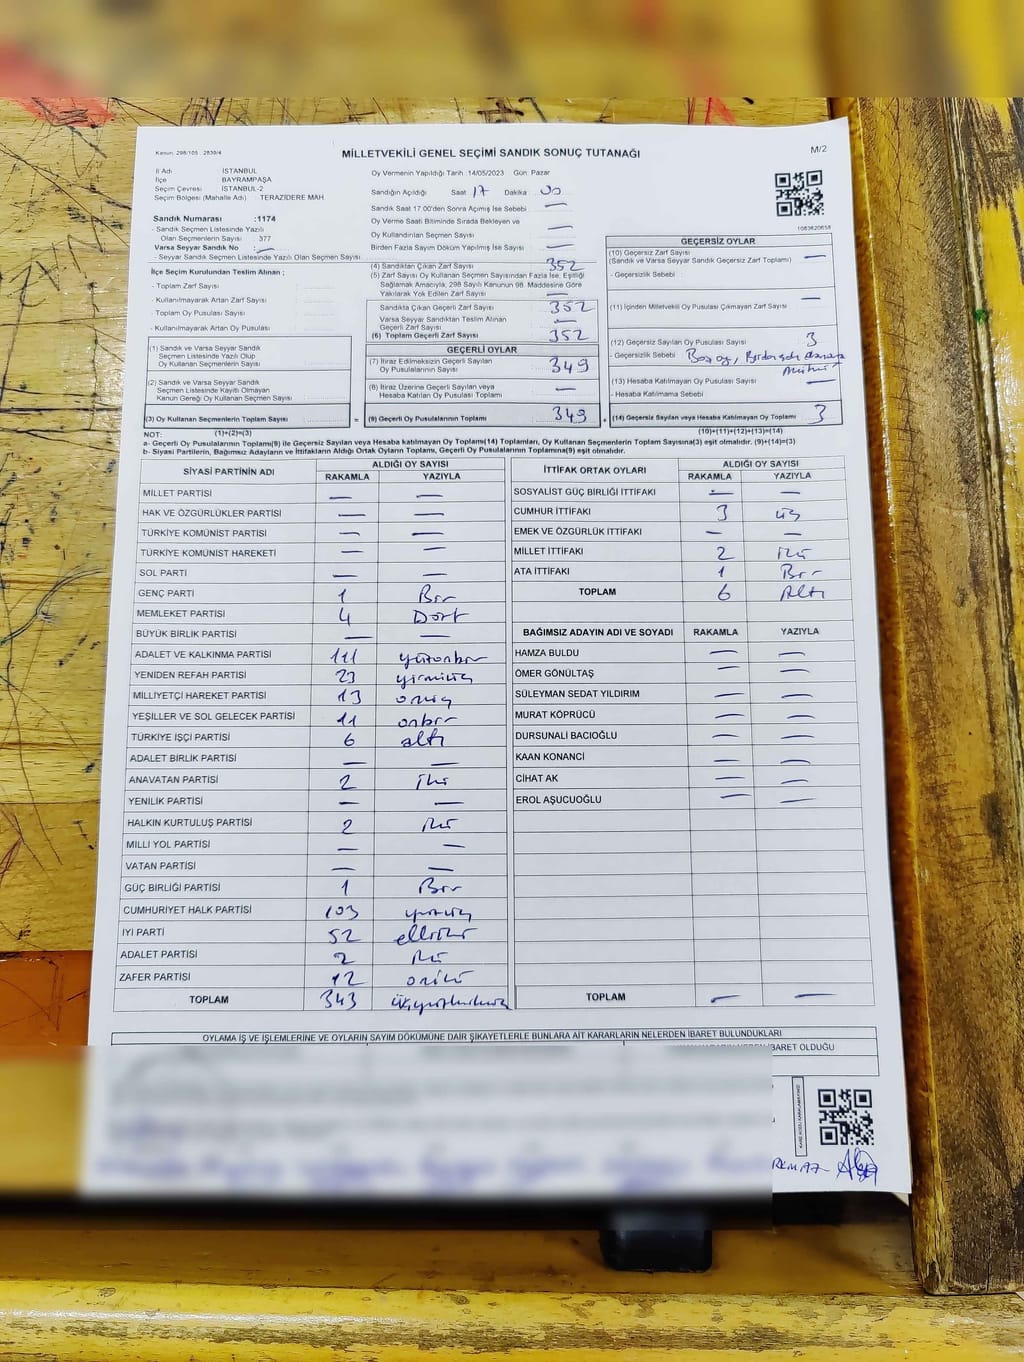 Kanun: 298/105 2839/4
MİLLETVEKİLİ GENEL SEÇİMİ SANDIK SONUÇ TUTANAĞI
M/2
İl Adı İSTANBUL
İlçe BAYRAMPAŞA
Seçim Çevresi İSTANBUL-2
Seçim Bölgesi (Mahalle Adı) TERAZİDERE MAH.
Sandık Numarası :1174
- Sandık Seçmen Listesinde Yazılı
Olan Seçmenlerin Sayısı : 377
Varsa Seyyar Sandık No : —
- Seyyar Sandık Seçmen Listesinde Yazılı Olan Seçmen Sayısı
İlçe Seçim Kurulundan Teslim Alınan ;
- Toplam Zarf Sayısı
- Kullanılmayarak Artan Zarf Sayısı
- Toplam Oy Pusulası Sayısı
- Kullanılmayarak Artan Oy Pusulası
(1) Sandık ve Varsa Seyyar Sandık
Seçmen Listesinde Yazılı Olup
Oy Kullanan Seçmenlerin Sayısı
(2) Sandık ve Varsa Seyyar Sandık
Seçmen Listesinde Kayıtlı Olmayan
Kanun Gereği Oy Kullanan Seçmen Sayısı
(3) Oy Kullanan Seçmenlerin Toplam Sayısı
(1)+(2)=(3)
Oy Vermenin Yapıldığı Tarih :14/05/2023 Gün: Pazar
Sandığın Açıldığı Saat 17 Dakika 00
Sandık Saat 17.00'den Sonra Açılmış İse Sebebi —
Oy Verme Saati Bitiminde Sırada Bekleyen ve
Oy Kullandırılan Seçmen Sayısı —
Birden Fazla Sayım Döküm Yapılmış İse Sayısı —
(4) Sandıktan Çıkan Zarf Sayısı 352
(5) Zarf Sayısı Oy Kullanan Seçmen Sayısından Fazla İse, Eşitliği
Sağlamak Amacıyla, 298 Sayılı Kanunun 98. Maddesine Göre
Yakılarak Yok Edilen Zarf Sayısı —
Sandıkta Çıkan Geçerli Zarf Sayısı 352
Varsa Seyyar Sandıktan Teslim Alınan
Geçerli Zarf Sayısı —
(6) Toplam Geçerli Zarf Sayısı 352
GEÇERLİ OYLAR
(7) İtiraz Edilmeksizin Geçerli Sayılan
Oy Pusulalarının Sayısı 349
(8) İtiraz Üzerine Geçerli Sayılan veya
Hesaba Katılan Oy Pusulası Toplamı —
= (9) Geçerli Oy Pusulalarının Toplamı 349
1083620658
GEÇERSİZ OYLAR
(10) Geçersiz Zarf Sayısı
(Sandık ve Varsa Seyyar Sandık Geçersiz Zarf Toplamı) —
- Geçersizlik Sebebi
(11) İçinden Milletvekili Oy Pusulası Çıkmayan Zarf Sayısı —
(12) Geçersiz Sayılan Oy Pusulası Sayısı 3
- Geçersizlik Sebebi Boş oy,
mühür
(13) Hesaba Katılmayan Oy Pusulası Sayısı —
- Hesaba Katılmama Sebebi
+ (14) Geçersiz Sayılan veya Hesaba Katılmayan Oy Toplamı 3
(10)+(11)+(12)+(13)=(14)
NOT:
a- Geçerli Oy Pusulalarının Toplamı(9) ile Geçersiz Sayılan veya Hesaba katılmayan Oy Toplamı(14) Toplamları, Oy Kullanan Seçmenlerin Toplam Sayısına(3) eşit olmalıdır. (9)+(14)=(3)
b- Siyasi Partilerin, Bağımsız Adayların ve İttifakların Aldığı Ortak Oyların Toplamı, Geçerli Oy Pusulalarının Toplamına(9) eşit olmalıdır.
SİYASİ PARTİNİN ADI ALDIĞI OY SAYISI
RAKAMLA YAZIYLA
MİLLET PARTİSİ — —
HAK VE ÖZGÜRLÜKLER PARTİSİ — —
TÜRKİYE KOMÜNİST PARTİSİ — —
TÜRKİYE KOMÜNİST HAREKETİ — —
SOL PARTİ — —
GENÇ PARTİ 1 Bir
MEMLEKET PARTİSİ 4 Dört
BÜYÜK BİRLİK PARTİSİ — —
ADALET VE KALKINMA PARTİSİ 111 yüzonbir
YENİDEN REFAH PARTİSİ 23 yirmiüç
MİLLİYETÇİ HAREKET PARTİSİ 13 onüç
YEŞİLLER VE SOL GELECEK PARTİSİ 11 onbir
TÜRKİYE İŞÇİ PARTİSİ 6 altı
ADALET BİRLİK PARTİSİ — —
ANAVATAN PARTİSİ 2 iki
YENİLİK PARTİSİ — —
HALKIN KURTULUŞ PARTİSİ 2 iki
MİLLİ YOL PARTİSİ — —
VATAN PARTİSİ — —
GÜÇ BİRLİĞİ PARTİSİ 1 Bir
CUMHURİYET HALK PARTİSİ 103 yüzüç
İYİ PARTİ 52 elliiki
ADALET PARTİSİ 2 iki
ZAFER PARTİSİ 12 oniki
TOPLAM 343 üçyüzkırküç
İTTİFAK ORTAK OYLARI ALDIĞI OY SAYISI
RAKAMLA YAZIYLA
SOSYALİST GÜÇ BİRLİĞİ İTTİFAKI — —
CUMHUR İTTİFAKI 3 üç
EMEK VE ÖZGÜRLÜK İTTİFAKI — —
MİLLET İTTİFAKI 2 iki
ATA İTTİFAKI 1 Bir
TOPLAM 6 Altı
BAĞIMSIZ ADAYIN ADI VE SOYADI RAKAMLA YAZIYLA
HAMZA BULDU — —
ÖMER GÖNÜLTAŞ — —
SÜLEYMAN SEDAT YILDIRIM — —
MURAT KÖPRÜCÜ — —
DURSUNALİ BACIOĞLU — —
KAAN KONANCİ — —
CİHAT AK — —
EROL AŞUCUOĞLU — —
TOPLAM — —
OYLAMA İŞ VE İŞLEMLERİNE VE OYLARIN SAYIM DÖKÜMÜNE DAİR ŞİKAYETLERLE BUNLARA AİT KARARLARIN NELERDEN İBARET BULUNDUKLARI
İBARET OLDUĞU